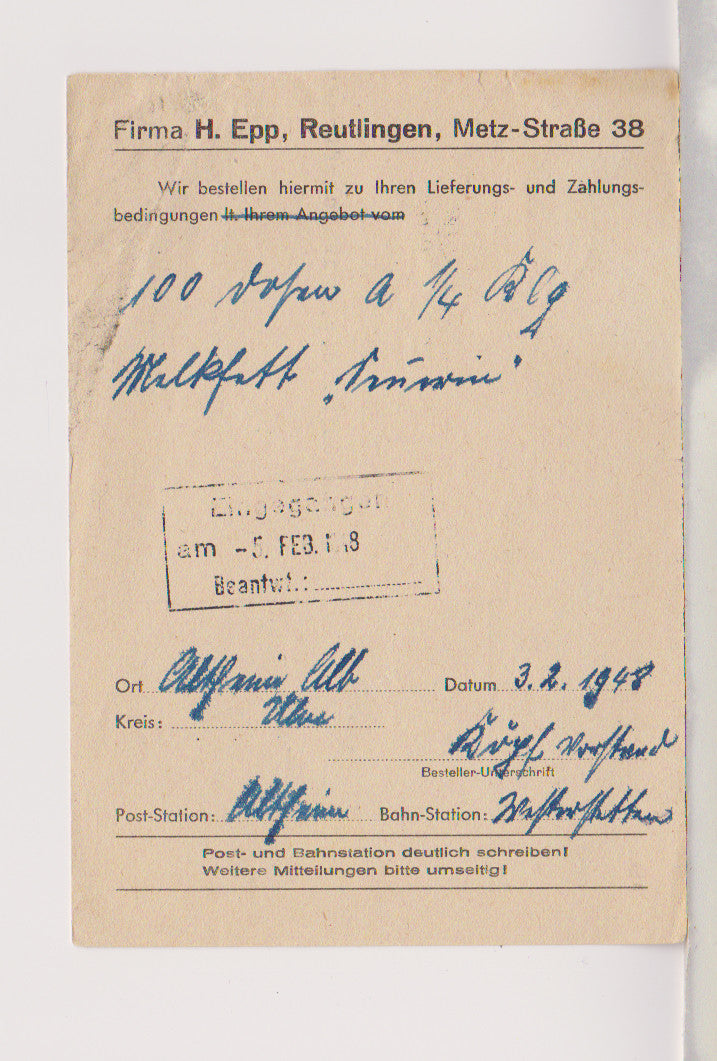 Firma H. Epp, Reutlingen, Metz-Straße 38
Wir bestellen hiermit zu Ihren Lieferungs- und Zahlungs-
bedingungen lt. Ihrem Angebot vom
100 Dosen a 1/4 Klg
Melkfett
Eingegangen
am -5. FEB. 1948
Beantw.:
Ort Altheim Alb Datum 3.2.1948
Kreis: Ulm
Vorstand
Besteller-Unterschrift
Post-Station: Altheim Bahn-Station: Westerstetten
Post- und Bahnstation deutlich schreiben!
Weitere Mitteilungen bitte umseitig!